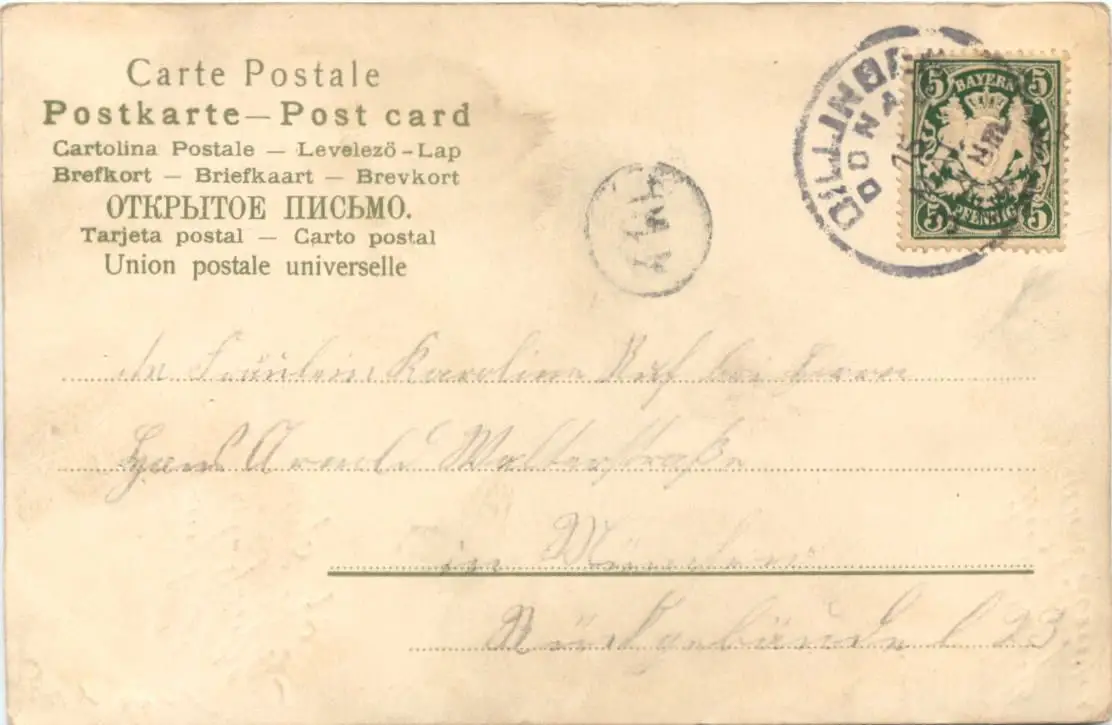 Carte Postale
Postkarte — Post card
Cartolina Postale — Levelező - Lap
Brefkort — Briefkaart — Brevkort
ОТКРЫТОЕ ПИСЬМО.
Tarjeta postal — Carto postal
Union postale universelle
DILLINGE
DONA
5 BAYERN 5
5 PFENNIG 5
Fräulein Karolina Ruf bei Herrn
Hans Walterstraße
in München
Rückgebäude 23